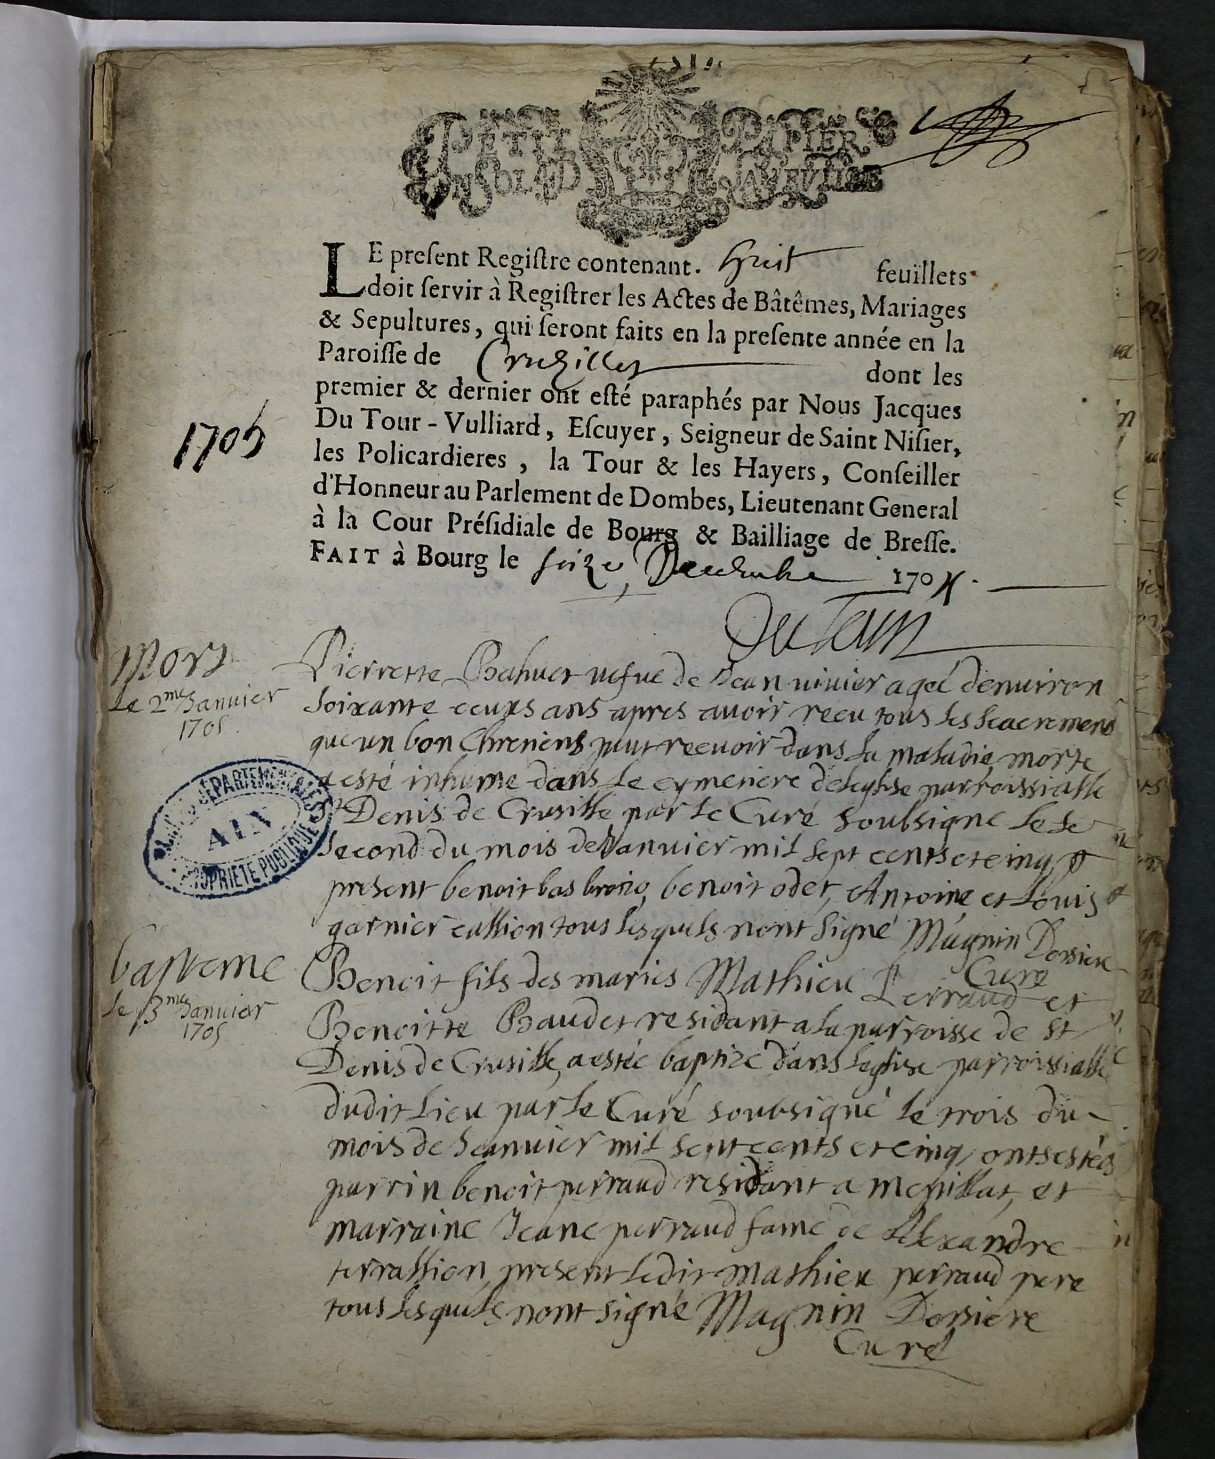 PETIT PAPIER
LE present Registre contenant. huit feuillets
doit servir à Registrer les Actes de Bâtêmes, Mariages
& Sepultures, qui seront faits en la presente année en la
Paroisse de Cruzilles dont les
premier & dernier ont esté paraphés par Nous Jacques
Du Tour-Vulliard, Escuyer, Seigneur de Saint Nisier,
les Policardieres, la Tour & les Hayers, Conseiller
d'Honneur au Parlement de Dombes, Lieutenant General
à la Cour Présidiale de Bourg & Bailliage de Bresse.
FAIT à Bourg le seize Decembre 1704.
1705
DuTour
Mors
Le 2me Janvier
1705
Pierrette vefve de Jean vivier agée denuirron
soixante ans apres avoir receu tous les sacremens
que un bon Chretiens peut recevoir dans sa maladie morte
a esté inhume dans le cymetiere deleglise parroissialle
St Denis de Crusille par le Curé soubsigné le
second du mois de Janvier mil sept cents et cinq
present benoit bas benoit odet, Antoine et Louis
garnier tous lesquels nont signé Magnin Dorsiere
Curé
ARCHIVES DÉPARTEMENTALES
AIN
PROPRIÉTÉ PUBLIQUE
bapteme
le 3me Janvier
1705
Benoit fils des maries Mathieu Perraud et
Benoitte Baudet residant a la parroisse de St
Denis de Crusille, a estée baptizé dans leglise parroissialle
dudit lieu par le Curé soubsigné le trois du
mois de Janvier mil sept cents et cinq, ont estées
parrin benoit perraud residant a mepillat, et
marraine Jeane perraud fame de Alexandre
terrassion, present ledit Mathieu perraud pere
tous lesquels nont signé Magnin Dorsiere
Curé